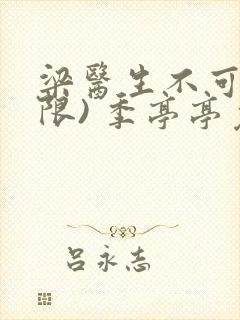 梁醫生不可
限）季亭亭
呂永志